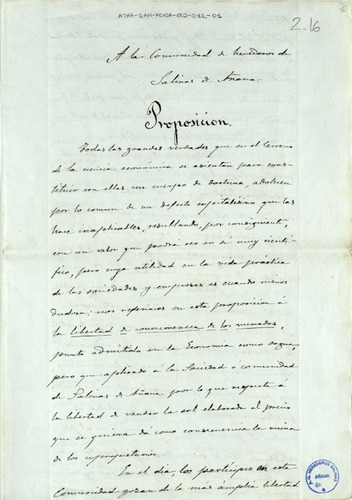 ATHA-DAH-ACHSA-002-012-01
2.16
A la Comunidad de herederos de
Salinas de Añana.
Proposicion.
Todas las grandes verdades que en el terreno
de la ciencia económica se asientan para cons-
tituir con ellas un cuerpo de doctrina, adolecen
por lo comun de un defecto capitalísimo que las
hace inaplicables, resultando, por consiguiente,
con un valor que podrá ser en sí muy cientí-
fico, pero cuya utilidad en la vida práctica
de las sociedades y empresas es cuando menos
dudosa: nos referimos en esta proposicion á
la libertad de concurrencia de los mercados,
punto admitido en la Economía como dogma,
pero que aplicado á la Sociedad o comunidad
de Salinas de Añana por lo que respecta á
la libertad de vender la sal elaborada al precio
que se quiera dá como consecuencia la ruina
de los copropietarios.
En el dia, los partícipes en esta
Comunidad gozan de la mas amplia libertad
AÑANA